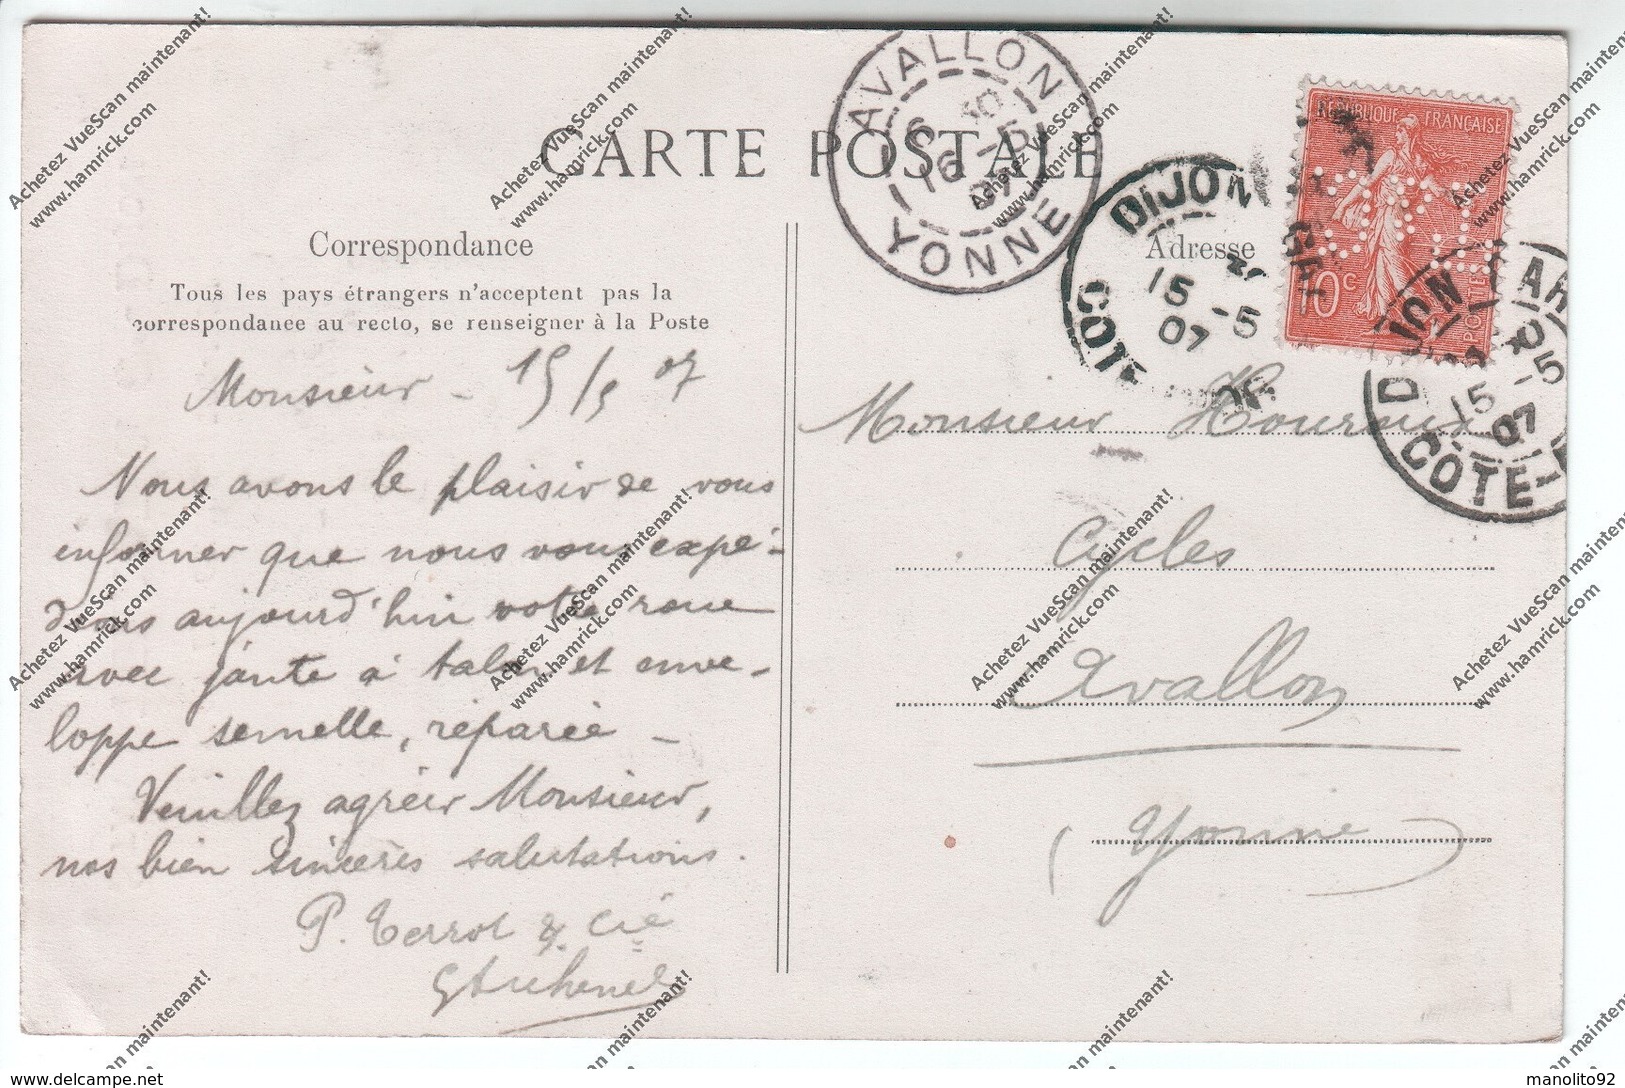 CARTE POSTALE
Correspondance
Tous les pays étrangers n'acceptent pas la
correspondance au recto, se renseigner à la Poste
Monsieur - 15/5 07
Nous avons le plaisir de vous
informer que nous vous expé-
dions aujourd'hui votre roue
avec jante à talon et enve-
loppe semelle, réparée -
Veuillez agréer Monsieur,
nos bien sincères salutations.
P. Terrot & Cie
Adresse
Monsieur
Cycles
Avallon
(Yonne)
AVALLON
16 -5
07
YONNE
DIJON
15 -5
07
COTE D'OR
REPUBLIQUE FRANÇAISE
10c
POSTES
DIJON
15 -5
07
COTE-
Achetez VueScan maintenant!
www.hamrick.com
www.delcampe.net
manolito92